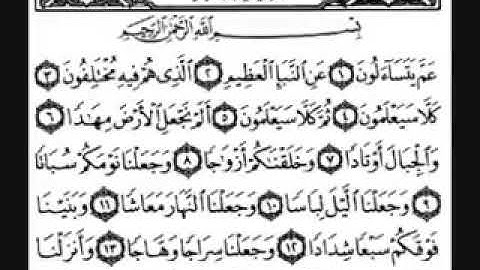 بِسْمِ ٱللَّهِ ٱلرَّحْمَٰنِ ٱلرَّحِيمِ
عَمَّ يَتَسَآءَلُونَ ١ عَنِ ٱلنَّبَإِ ٱلْعَظِيمِ ٢ ٱلَّذِى هُمْ فِيهِ مُخْتَلِفُونَ ٣
كَلَّا سَيَعْلَمُونَ ٤ ثُمَّ كَلَّا سَيَعْلَمُونَ ٥ أَلَمْ نَجْعَلِ ٱلْأَرْضَ مِهَٰدًا ٦
وَٱلْجِبَالَ أَوْتَادًا ٧ وَخَلَقْنَٰكُمْ أَزْوَٰجًا ٨ وَجَعَلْنَا نَوْمَكُمْ سُبَاتًا
٩ وَجَعَلْنَا ٱلَّيْلَ لِبَاسًا ١٠ وَجَعَلْنَا ٱلنَّهَارَ مَعَاشًا ١١ وَبَنَيْنَا
فَوْقَكُمْ سَبْعًا شِدَادًا ١٢ وَجَعَلْنَا سِرَاجًا وَهَّاجًا ١٣ وَأَنزَلْنَا